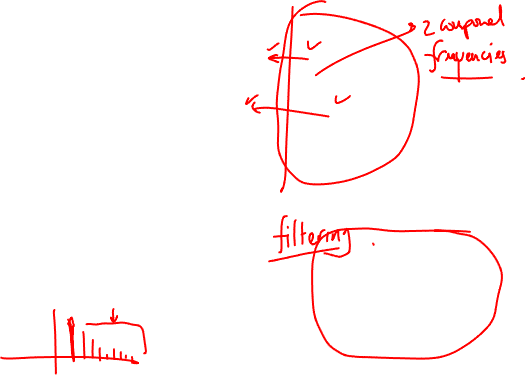 2 componel
frequencies
filtering